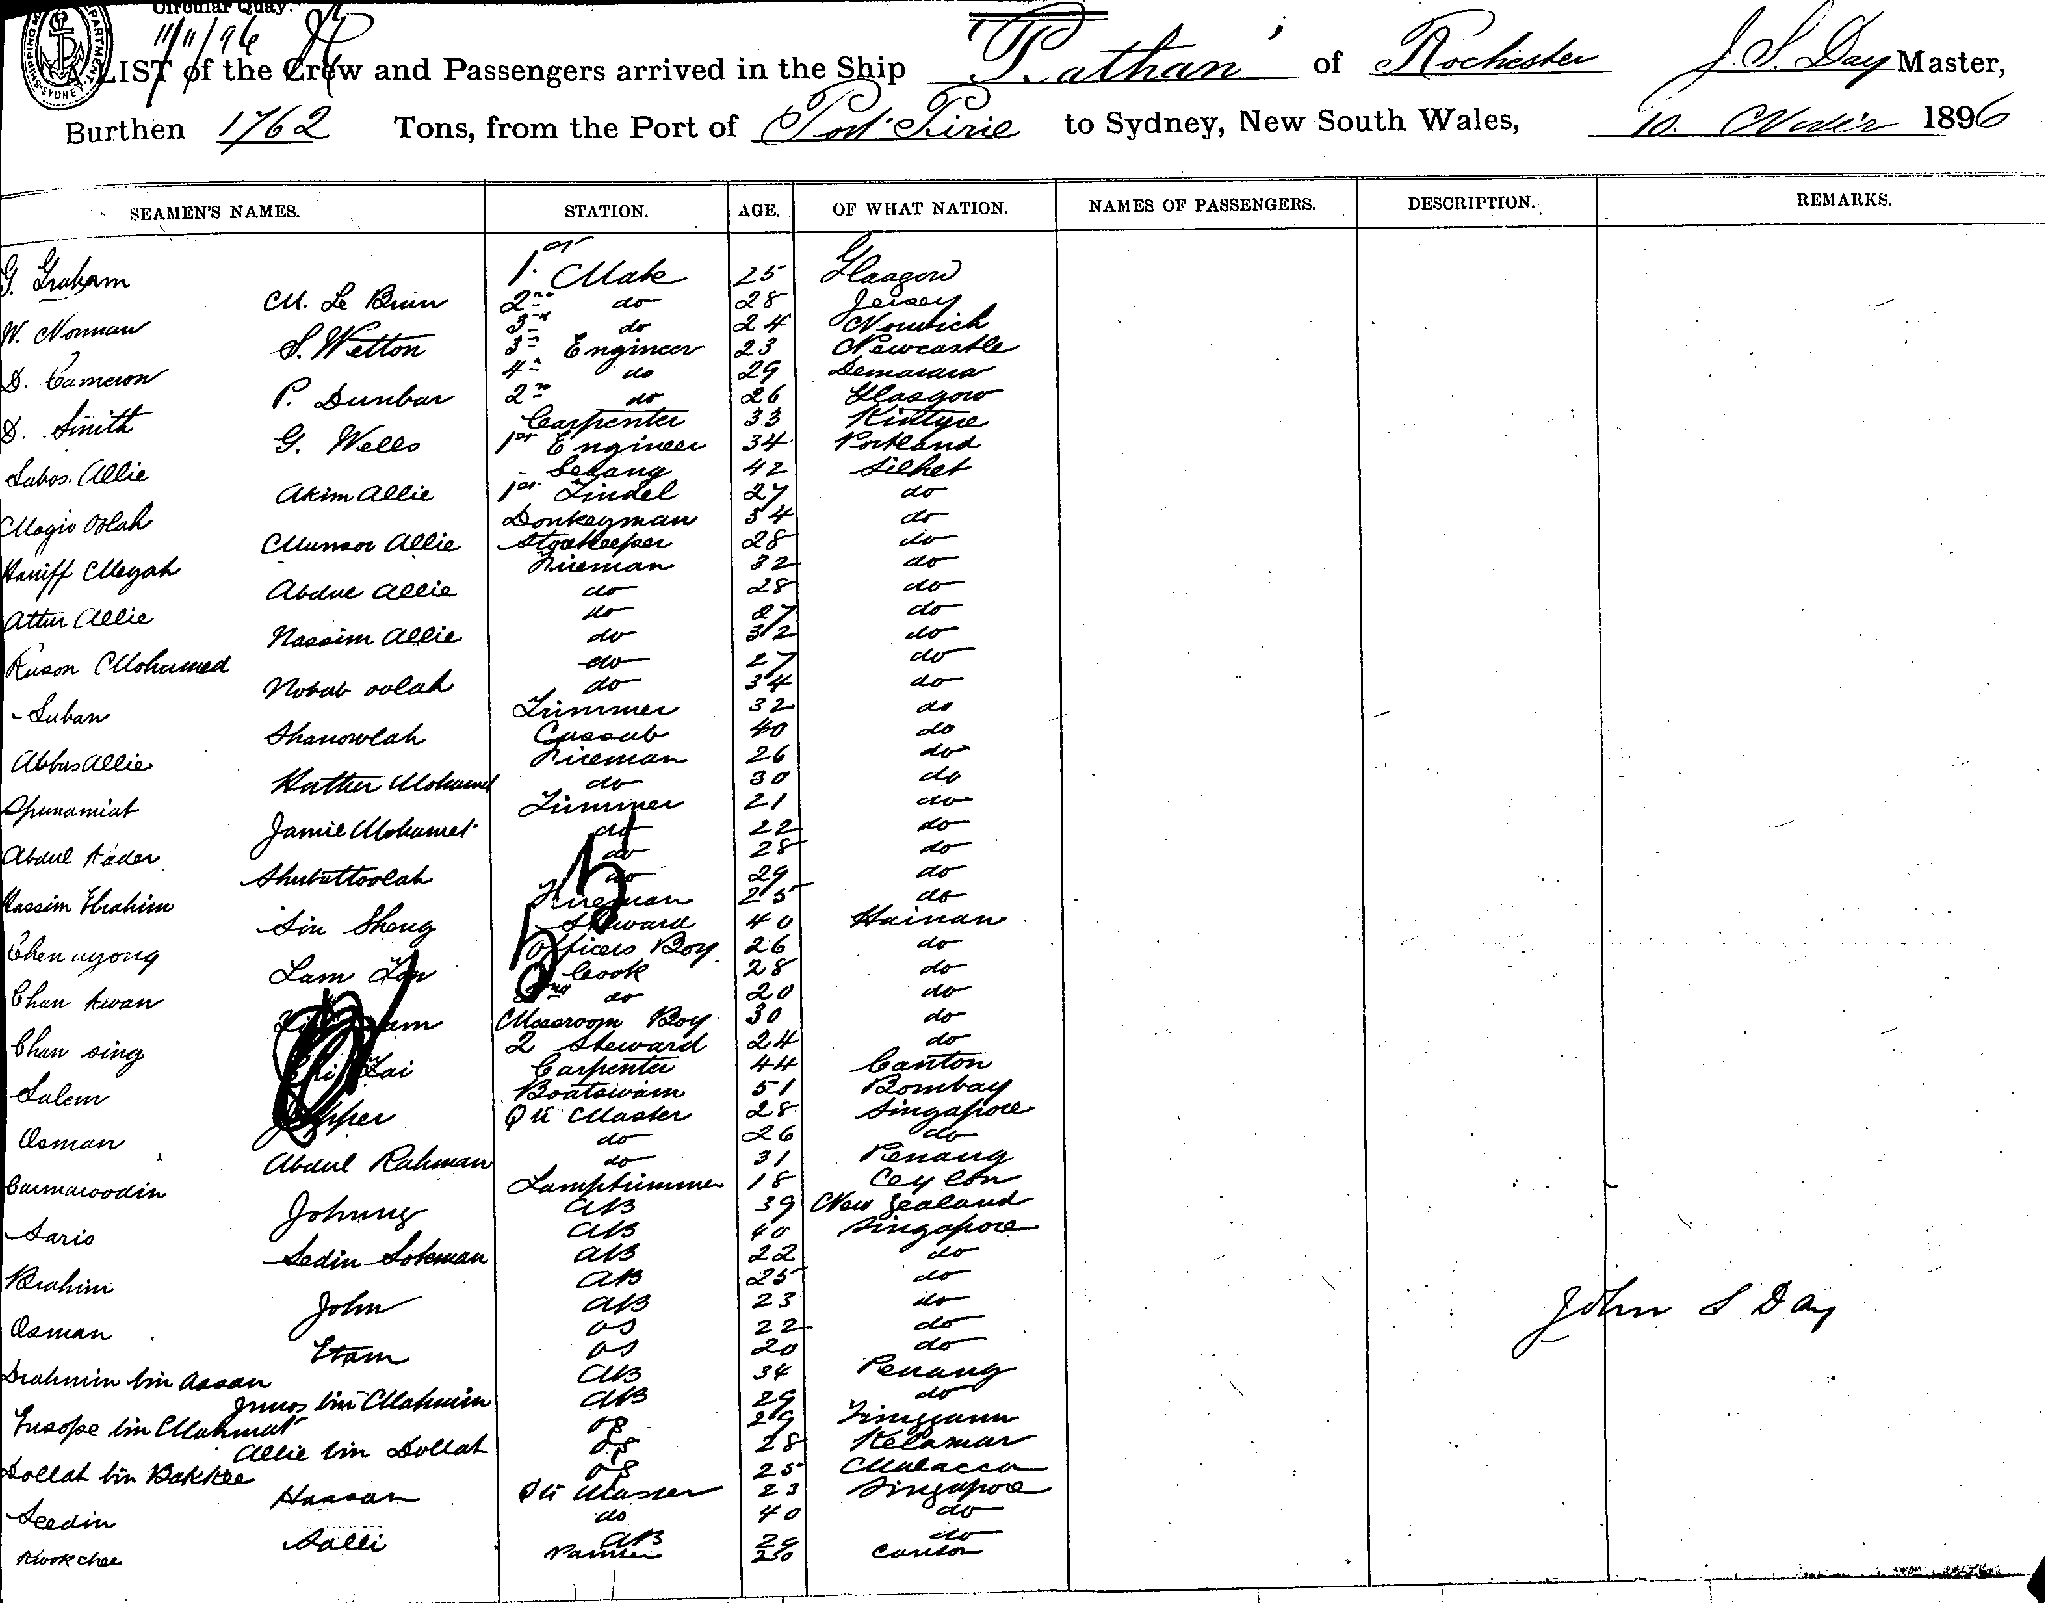 Circular Quay.
11/11/96
A LIST of the Crew and Passengers arrived in the Ship "Pathan" of Rochester J. S. Day Master,
Burthen 1762 Tons, from the Port of Port Pirie to Sydney, New South Wales, 10. Novr 1896
SEAMEN'S NAMES. STATION. AGE. OF WHAT NATION. NAMES OF PASSENGERS. DESCRIPTION. REMARKS.
G. Graham 1st Mate 25 Glasgow
M. Le Brun 2nd do 28 Jersey
W. Norman 3rd do 24 Norwich
S. Wetton 3rd Engineer 23 Newcastle
D. Cameron 4th do 29 Demarara
P. Dunbar 2nd do 26 Glasgow
D. Smith Carpenter 33 Kintyre
G. Wells 1st Engineer 34 Portland
Subos Allie Serang 42 Silhet
Akim Allie 1st Tindel 27 do
Mogio Oolah Donkeyman 34 do
Munsor Allie Storekeeper 28 do
Haniff Meyah Fireman 32 do
Abdul Allie do 28 do
Attur Allie do 27 do
Nassim Allie do 32 do
Kuson Mohamed do 27 do
Nobab oolah do 34 do
Suban Trimmer 32 do
Shanowlah Cassab 40 do
Abbas Allie Fireman 26 do
Kather Mohamed do 30 do
Trimmer 21 do
Jamie Mohamet do 22 do
Abdul Kader do 28 do
Shubuttoolah do 29 do
Kassim Ibrahim Fireman 25 do
Sin Sheng Steward 40 Hainan
Chen uyong Officers Boy 26 do
Lam Cook 28 do
Chan Kwan 2nd do 20 do
Messroom Boy 30 do
Chan sing 2 Steward 24 do
Carpenter 44 Canton
Salem Boatswain 51 Bombay
Qu Master 28 Singapore
Osman do 26 do
Abdul Rahman do 31 Penang
Carmaroodin Lamptrimmer 18 Ceylon
Johnny AB 39 New Zealand
Saris AB 40 Singapore
Sedin Soleman AB 22 do
Brahim AB 25 do
John AB 23 do
Osman OS 22 do
Etam OS 20 do
Drahmin bin Assan AB 34 Penang
Junos bin Mahmin AB 29 do
Eusope bin Mahmat OS 29 Tringganu
Allie bin Dollah OS 28
Dollah bin Bakker OS 25 Malacca
Hassan Qu Master 23 Singapore
Seedin do 40 do
Salli AB do
Kwok chee 20 Canton
John S Day